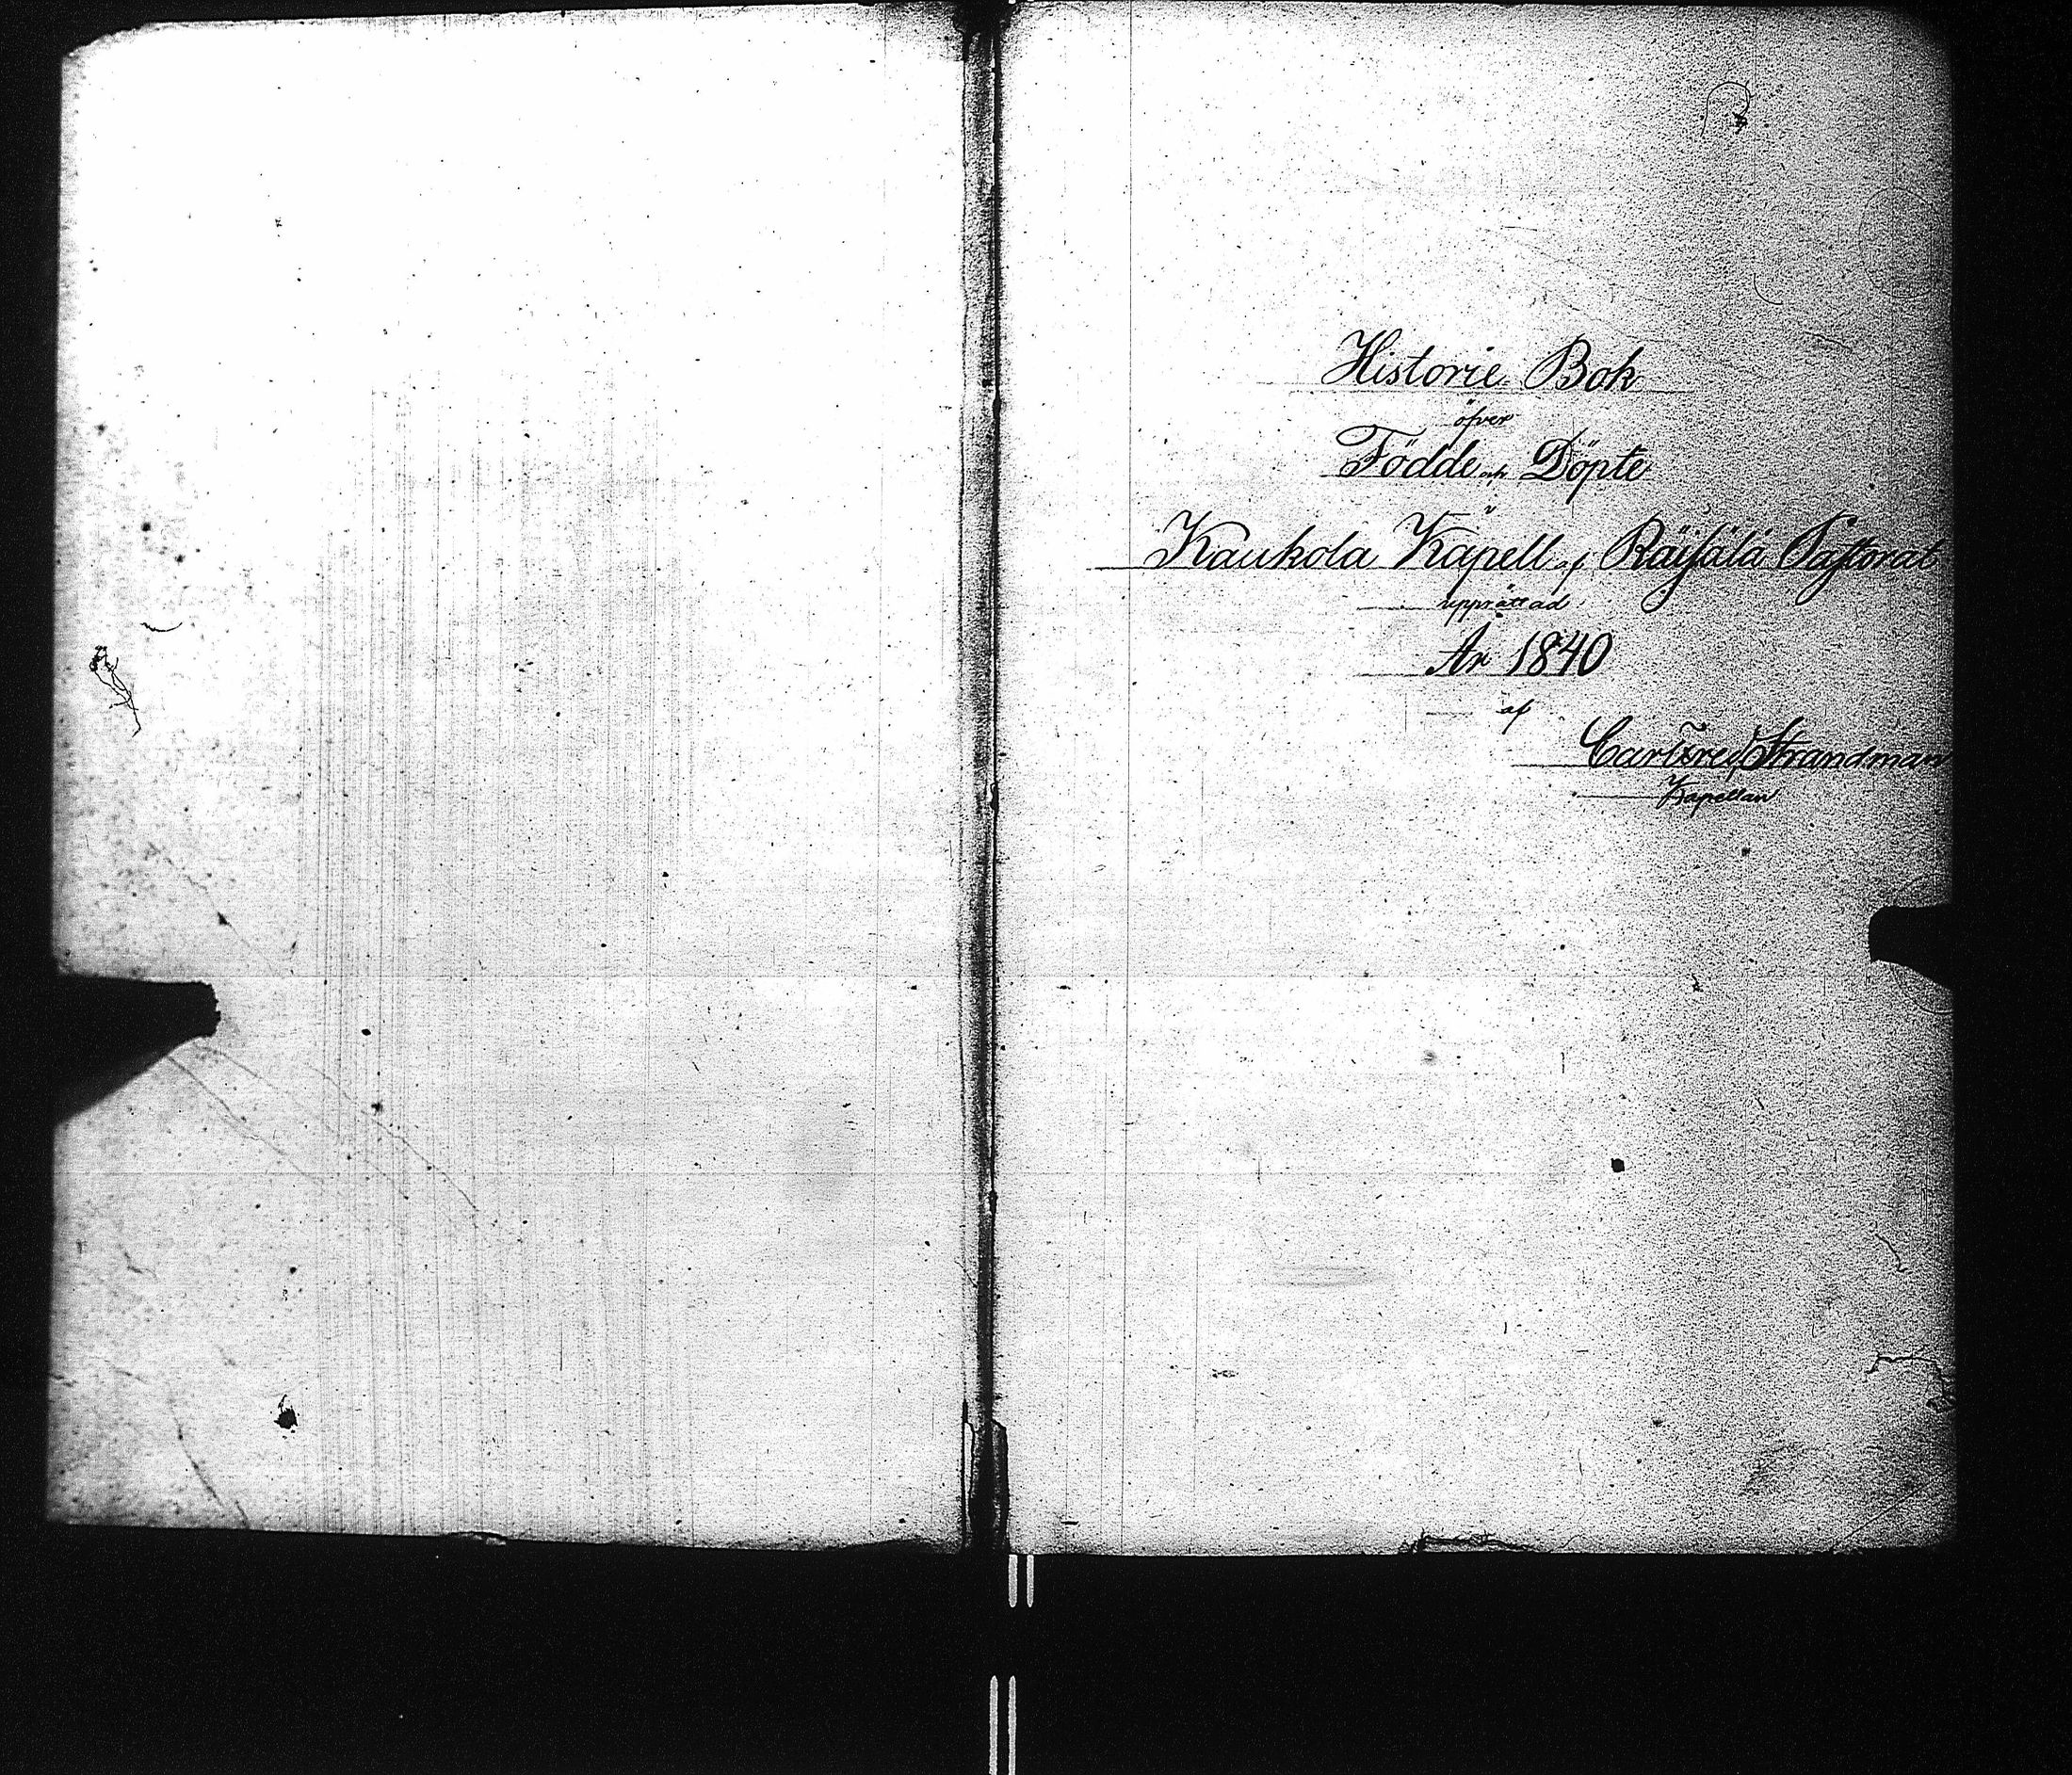 Historie Bok
öfver
Födde och Döpte
i
Kaukola Kapell af Räisälä Pastorat
upprättad
År 1840
af
Carl Fred Strandman
Kapellan